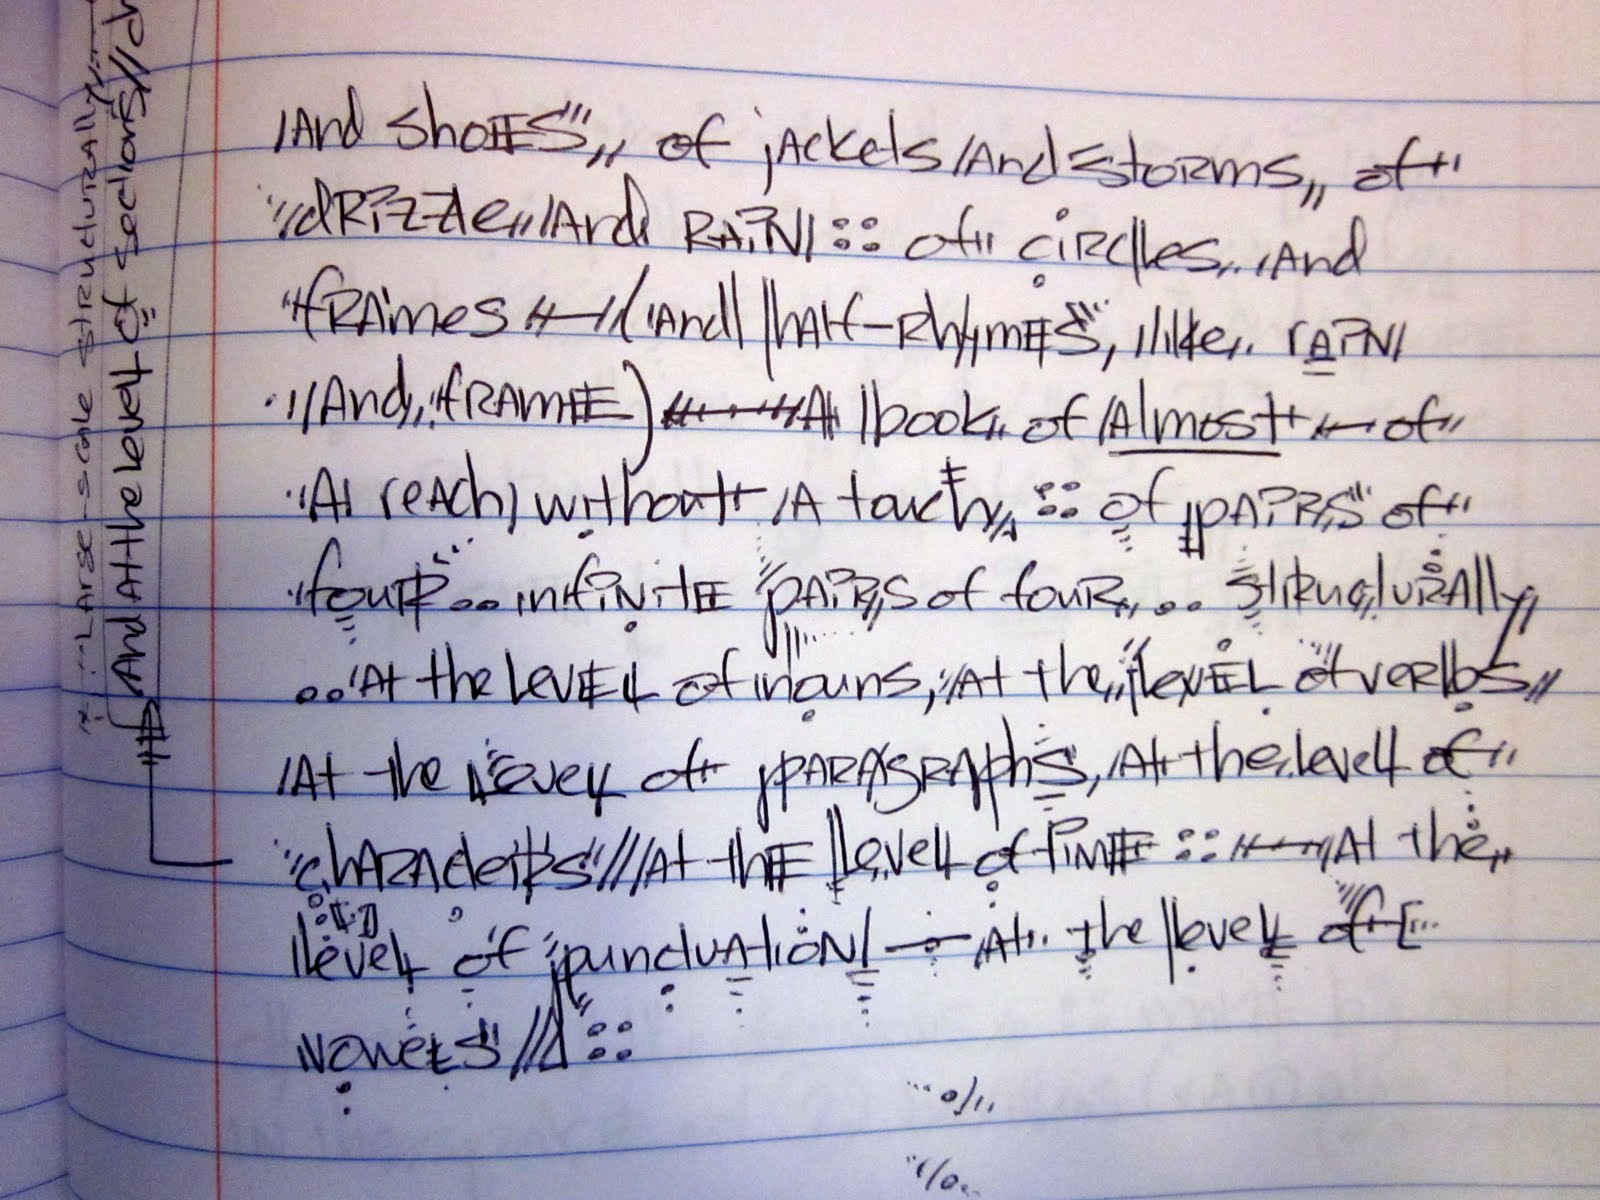 And shoes,, of jackets And storms,, of
drizzle,, And RAiN :: of circles,.. And
frames — (And half-rhymes, like.. rAiN
And,, frame) — A book,, of Almost — of
A reach, without A touch,, :: of pairs of
four.. infinite pairs of four,, .. structurally,
..At the level of nouns, At the,, level of verbs,,
At the level of paragraphs, At the level of
characters///At the level of time :: — At the,,
level of punctuation — At.. the level of [
vowels /// ::
*: Large-scale structurally
And At the level of sections//